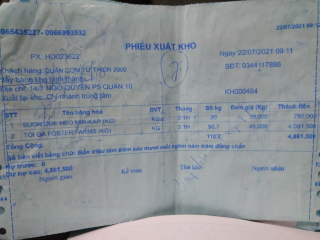 0965435227- 0966393532
22/07/2021 09:11
PHIẾU XUẤT KHO
PX. HD023622
Ngày 22/07/2021 09:11
Khách hàng: QUÁN CƠM TỪ THIỆN 2000
SĐT: 0344117898
Địa chỉ: 14/1 NGÔ QUYỀN P5 QUẬN 10
Xuất tại kho: Chi nhánh trung tâm
KH000464
STT Tên hàng hóa ĐVT Thùng Số kg Đơn giá (Kg) Thành tiền
1 KG 2 TH 20 39,000 780,000
2 TỎI GÀ FOSTER FARMS KG 5 TH 90.7 45,000 4,081,500
Tổng Cộng 110.7 4,861,500
Số tiền viết bằng chữ: Bốn triệu tám trăm sáu mươi mốt nghìn năm trăm đồng chẵn
Nợ trước: 0
Dư nợ sau: 4,861,500
Người giao Kế toán Thủ kho Người nhận